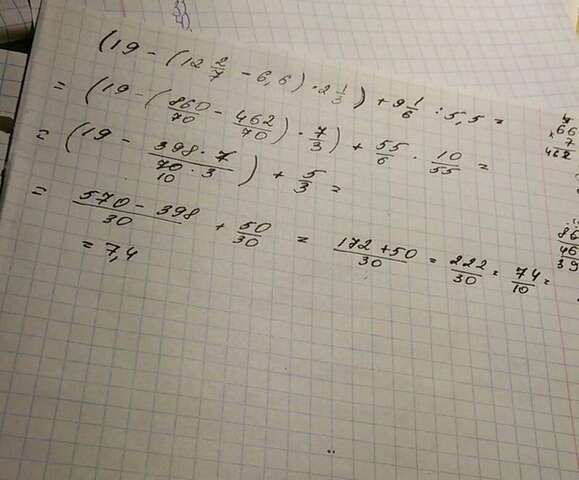 (19 - (12 2/7 - 6,6) · 2 1/3) + 9 1/6 : 5,5 =
= (19 - (860/70 - 462/70) · 7/3) + 55/6 · 10/55 =
= (19 - 398 · 7/70 · 3) + 5/3 =
10
= 570 - 398/30 + 50/30 = 172 + 50/30 = 222/30 = 74/10 =
= 7,4
66
× 7
462
86
46
39